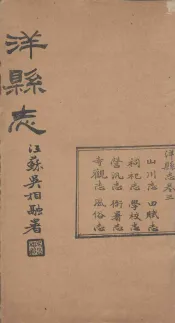 洋縣志卷三
山川志 田賦志
祠祀志 學校志
營汛志 衙署志
寺觀志 風俗志
洋縣志
江蘇吳相融署